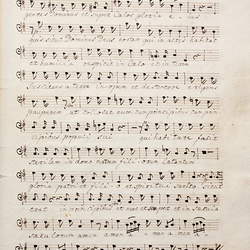 gentes Dominus et super Coelos gloria e jus
quis sic Dominus Deus noster qui in altis habitat
et humilia respicit in Coelo et in terra
Suscitans a terra inopem et de stercore erigens
pauperem ut collocet eum cum principibus cum prin
cipibus populi sui qui habitare facit
sterilem in domo matrem filiorum laetantem
gloria patri et filio et spiritui Sancto Sicut
erat in principio et nunc et semper et in Saecula
Saeculorum amen amen a men a men